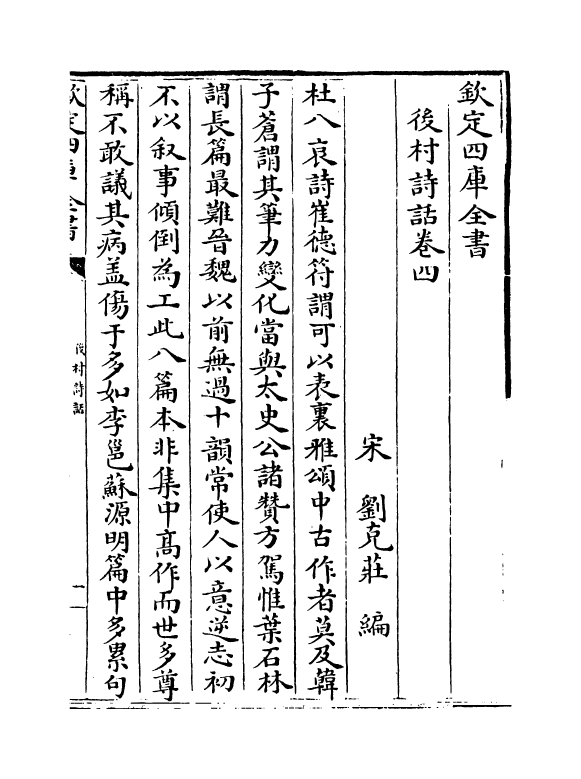 欽定四庫全書
後村詩話卷四
宋 劉克莊 編
杜八哀詩崔德符謂可以表裏雅頌中古作者莫及韓
子蒼謂其筆力變化當與太史公諸贊方駕惟葉石林
謂長篇最難晉魏以前無過十韻常使人以意逆志初
不以叙事傾倒為工此八篇本非集中高作而世多尊
稱不敢議其病盖傷于多如李邕蘇源明篇中多累句
欽定四庫全書
後村詩話
一